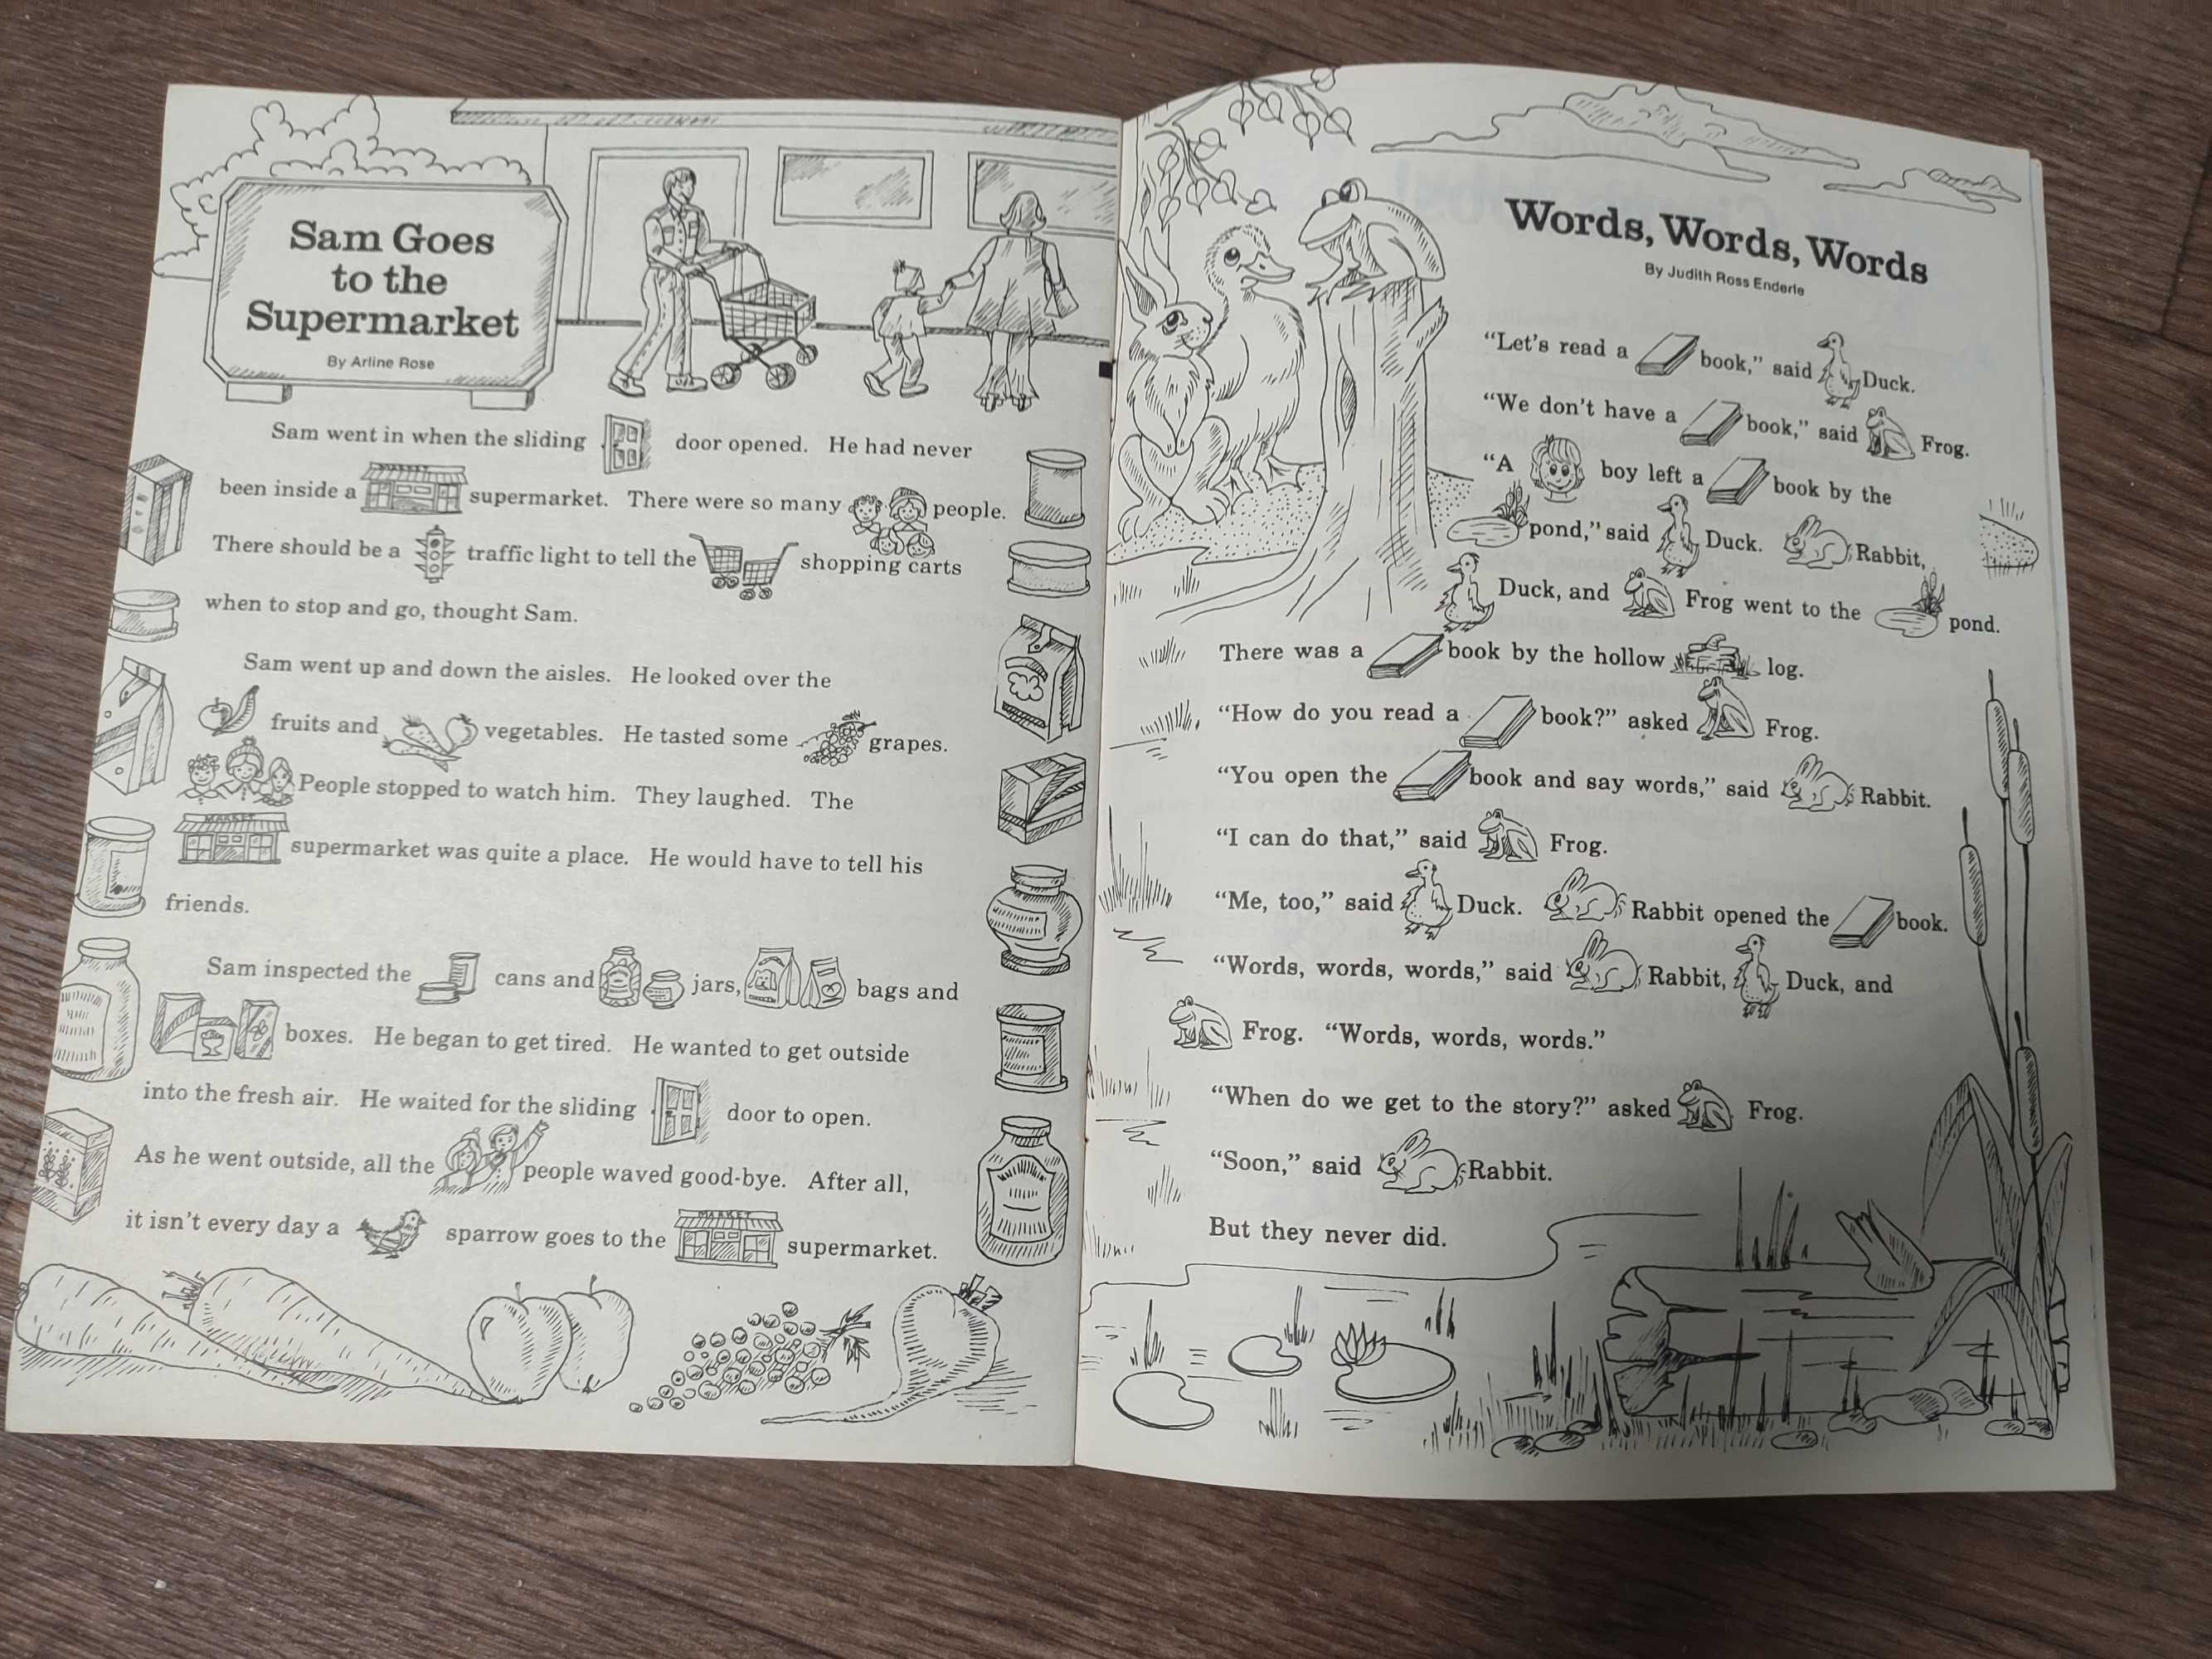 Sam Goes
to the
Supermarket
By Arline Rose
Sam went in when the sliding door opened. He had never
been inside a MARKET supermarket. There were so many people.
There should be a traffic light to tell the shopping carts
when to stop and go, thought Sam.
Sam went up and down the aisles. He looked over the
fruits and vegetables. He tasted some grapes.
People stopped to watch him. They laughed. The
MARKET supermarket was quite a place. He would have to tell his
friends.
Sam inspected the cans and jars, bags and
boxes. He began to get tired. He wanted to get outside
into the fresh air. He waited for the sliding door to open.
As he went outside, all the people waved good-bye. After all,
it isn't every day a sparrow goes to the MARKET supermarket.
Words, Words, Words
By Judith Ross Enderle
“Let's read a book,” said Duck.
“We don't have a book,” said Frog.
“A boy left a book by the
pond,” said Duck. Rabbit,
Duck, and Frog went to the pond.
There was a book by the hollow log.
“How do you read a book?” asked Frog.
“You open the book and say words,” said Rabbit.
“I can do that,” said Frog.
“Me, too,” said Duck. Rabbit opened the book.
“Words, words, words,” said Rabbit, Duck, and
Frog. “Words, words, words.”
“When do we get to the story?” asked Frog.
“Soon,” said Rabbit.
But they never did.